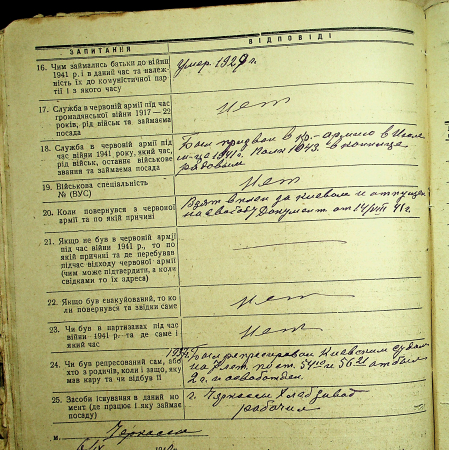 ЗАПИТАННЯ
ВІДПОВІДІ
16. Чим займались батьки до війни
1941 р. і в даний час та належ-
ність їх до комуністичної пар-
тії і з якого часу
умер 1929 г.
17. Служба в червоній армії під час
громадянської війни 1917—22
років, рід військ та займаєма
посада
нет
18. Служба в червоній армії під
час війни 1941 року, який час,
рід військ, останнє військове
звання та займаєма посада
Был призван в кр. армию в
м-це 1941 г.
рядовым
19. Військова спеціальність
№ (ВУС)
нет
20. Коли повернувся з червоної
армії та по якій причині
Взят в плен за Киевом и отпущен
на свободу Документ от 14/VIII 41 г.
21. Якщо не був в червоній армії
під час війни 1941 р., то по
якій причині та де перебував
підчас відходу червоної армії
(чим може підтвердити, а коли
свідками то їх адреса)
22. Якщо був евакуйований, то ко-
ли повернувся та звідки саме
нет
23. Чи був в партизанах під час
війни 1941 р. та де саме і
який час
нет
24. Чи був репресований сам, або
хто з родичів, коли і защо, яку
мав кару та чи відбув її
Был репресирован Киевским судом
на 7 лет. по ст. 54
2 г. и освобожден.
25. Засоби існування в даний мо-
мент (де працює і яку займає
посаду)
г. Черкассы Хлебзавод
рабочий
м. Черкассы